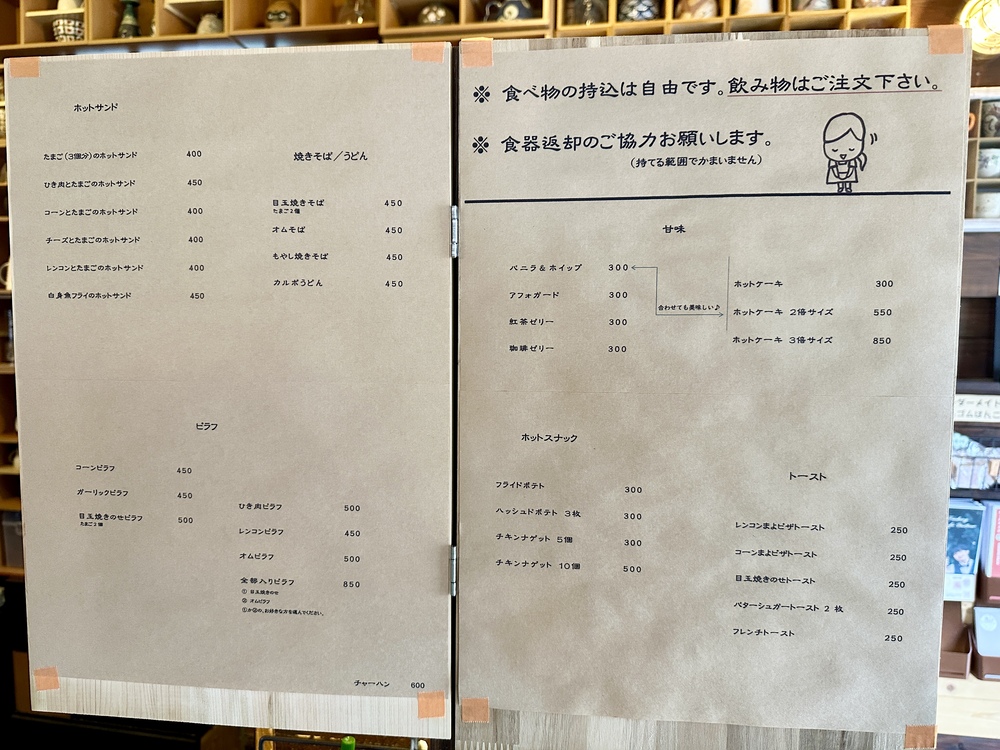 ホットサンド
たまご(3個分)のホットサンド 400
ひき肉とたまごのホットサンド 450
コーンとたまごのホットサンド 400
チーズとたまごのホットサンド 400
レンコンとたまごのホットサンド 400
白身魚フライのホットサンド 450
焼きそば/うどん
目玉焼きそば 450
たまご2個
オムそば 450
もやし焼きそば 450
カルボうどん 450
ピラフ
コーンピラフ 450
ガーリックピラフ 450
目玉焼きのせピラフ 500
たまご2個
ひき肉ピラフ 500
レンコンピラフ 450
オムピラフ 500
全部入りピラフ 850
① 目玉焼きのせ
② オムピラフ
①か②の、お好きな方を選んでください。
チャーハン 600
※ 食べ物の持込は自由です。飲み物はご注文下さい。
※ 食器返却のご協力お願いします。
(持てる範囲でかまいません)
甘味
バニラ&ホイップ 300
アフォガード 300
紅茶ゼリー 300
珈琲ゼリー 300
合わせても美味しい♪
ホットケーキ 300
ホットケーキ 2倍サイズ 550
ホットケーキ 3倍サイズ 850
ホットスナック
フライドポテト 300
ハッシュドポテト 3枚 300
チキンナゲット 5個 300
チキンナゲット 10個 500
トースト
レンコンまよピザトースト 250
コーンまよピザトースト 250
目玉焼きのせトースト 250
バターシュガートースト 2枚 250
フレンチトースト 250